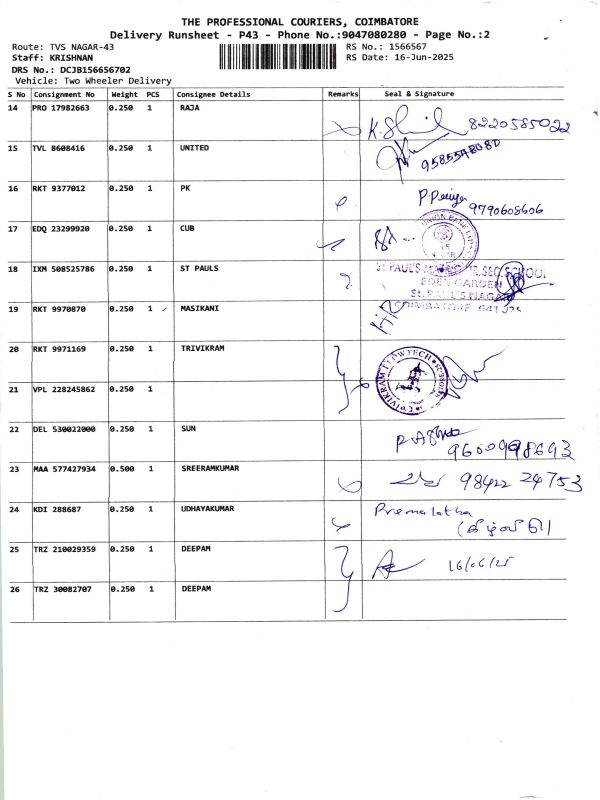 THE PROFESSIONAL COURIERS, COIMBATORE
Delivery Runsheet - P43 - Phone No.:9047080280 - Page No.:2
Route: TVS NAGAR-43 RS No.: 1566567
Staff: KRISHNAN RS Date: 16-Jun-2025
DRS No.: DCJB156656702
Vehicle: Two Wheeler Delivery
S No Consignment No Weight PCS Consignee Details Remarks Seal & Signature
14 PRO 17982663 0.250 1 RAJA 8220585022
15 TVL 8608416 0.250 1 UNITED
16 RKT 9377012 0.250 1 PK 9790608606
17 EDQ 23299920 0.250 1 CUB UNION BANK
18 IXM 508525786 0.250 1 ST PAULS ST. PAUL'S SEC. SCHOOL
EDEN GARDEN
ST. PAUL'S NAGAR
COIMBATORE
19 RKT 9970870 0.250 1 MASIKANI
20 RKT 9971169 0.250 1 TRIVIKRAM TRIVIKRAM FLOWTECH
21 VPL 228245862 0.250 1
22 DEL 530022000 0.250 1 SUN
23 MAA 577427934 0.500 1 SREERAMKUMAR 98422 24753
24 KDI 288687 0.250 1 UDHAYAKUMAR Premalatha
25 TRZ 210029359 0.250 1 DEEPAM 16/06/25
26 TRZ 30082707 0.250 1 DEEPAM